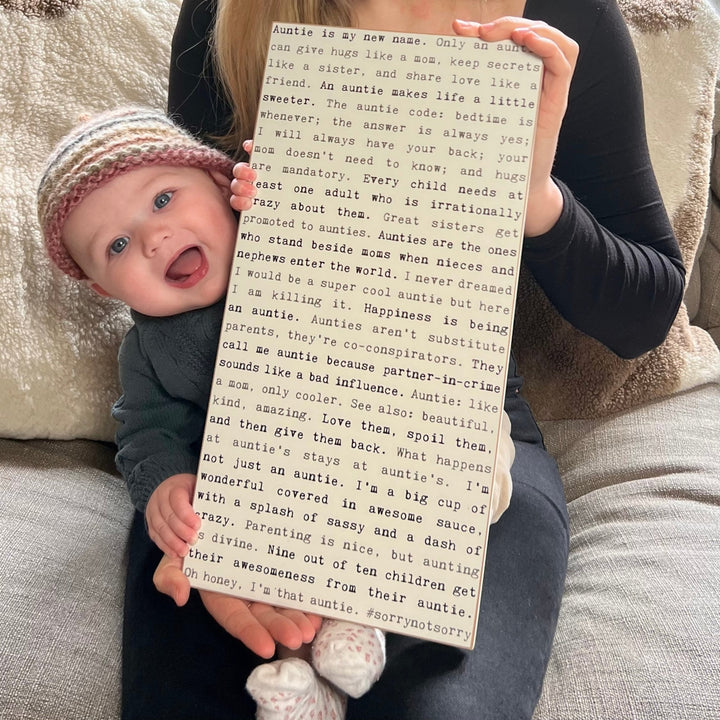 Auntie is my new name. Only an auntie
can give hugs like a mom, keep secrets
like a sister, and share love like a
friend. An auntie makes life a little
sweeter. The auntie code: bedtime is
whenever; the answer is always yes;
I will always have your back; your
mom doesn't need to know; and hugs
are mandatory. Every child needs at
least one adult who is irrationally
crazy about them. Great sisters get
promoted to aunties. Aunties are the ones
who stand beside moms when nieces and
nephews enter the world. I never dreamed
I would be a super cool auntie but here
I am killing it. Happiness is being
an auntie. Aunties aren't substitute
parents, they're co-conspirators. They
call me auntie because partner-in-crime
sounds like a bad influence. Auntie: like
a mom, only cooler. See also: beautiful,
kind, amazing. Love them, spoil them,
and then give them back. What happens
at auntie's stays at auntie's. I'm
not just an auntie. I'm a big cup of
wonderful covered in awesome sauce,
with a splash of sassy and a dash of
crazy. Parenting is nice, but aunting
is divine. Nine out of ten children get
their awesomeness from their auntie.
Oh honey, I'm that auntie. #sorrynotsorry